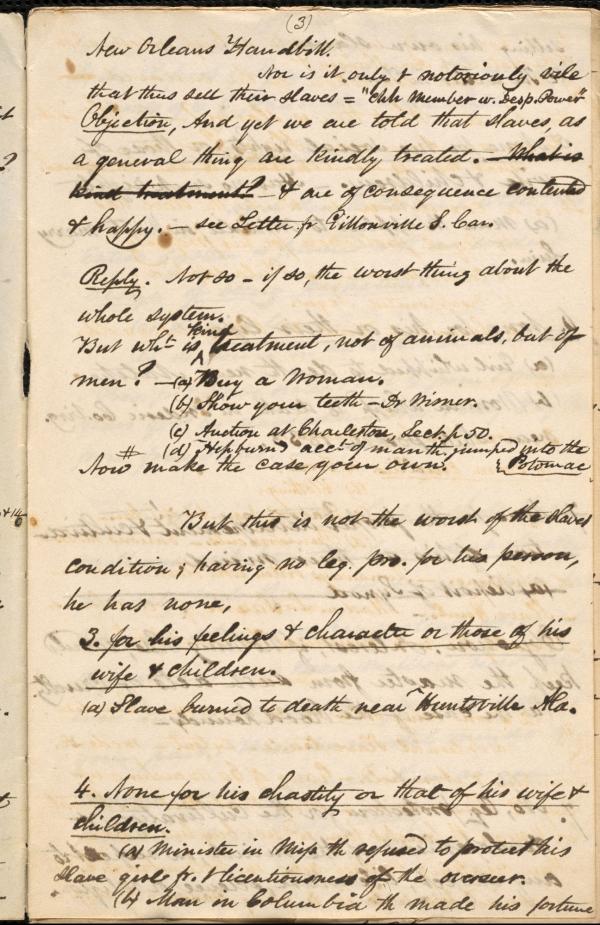 (3)
New Orleans Handbill.
Nor is it only & notoriously vile
that thus sell their slaves = "Chh member w. Desp. Power"
Objection, And yet we are told that slaves, as
a general thing are kindly treated. – What is
kind treatment? – & are of consequence contented
& happy. – see Letter fr Gillonville S. Car.
Reply. Not so – if so, the worst thing about the
whole system.
But wht is kind treatment, not of animals, but of
men? – (a) Buy a Woman.
(b) Show your teeth – Dr Wisner.
(c) Auction at Charleston, Lect. p 50.
(d) Hepburn's acct of man th. jumped into the
Now make the case your own. Potomac
But this is not the worst of the slaves
condition; having no leg. pro. for his person,
he has none,
3. for his feelings & character or those of his
wife & children.
(a) Slave burned to death near Huntsville Ala.
4. None for his chastity or that of his wife &
children.
(a) Minister in Miss th refused to protect his
slave girl fr. & licentiousness of the overseer.
(b) Man in Columbia th made his fortune